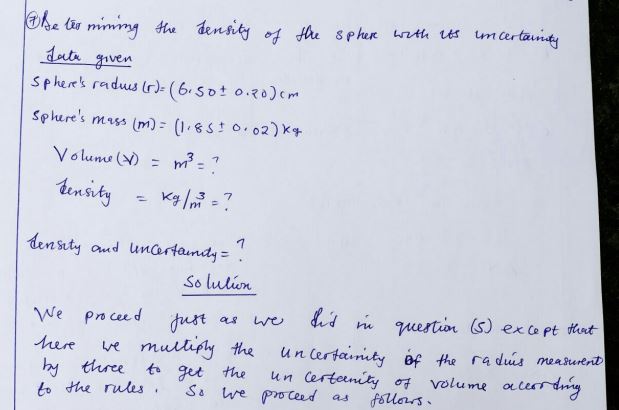 ⑦ Determining the density of the sphere with its uncertainity
data given
Sphere's radius (r) = (6.50 ± 0.20) cm
Sphere's mass (m) = (1.85 ± 0.02) kg
Volume (V) = m³ = ?
density = kg/m³ = ?
density and uncertainity = ?
Solution
We proceed just as we did in question (5) except that
here we multiply the uncertainity of the radius measurent
by three to get the uncerteenity of volume according
to the rules. So we proceed as follows.